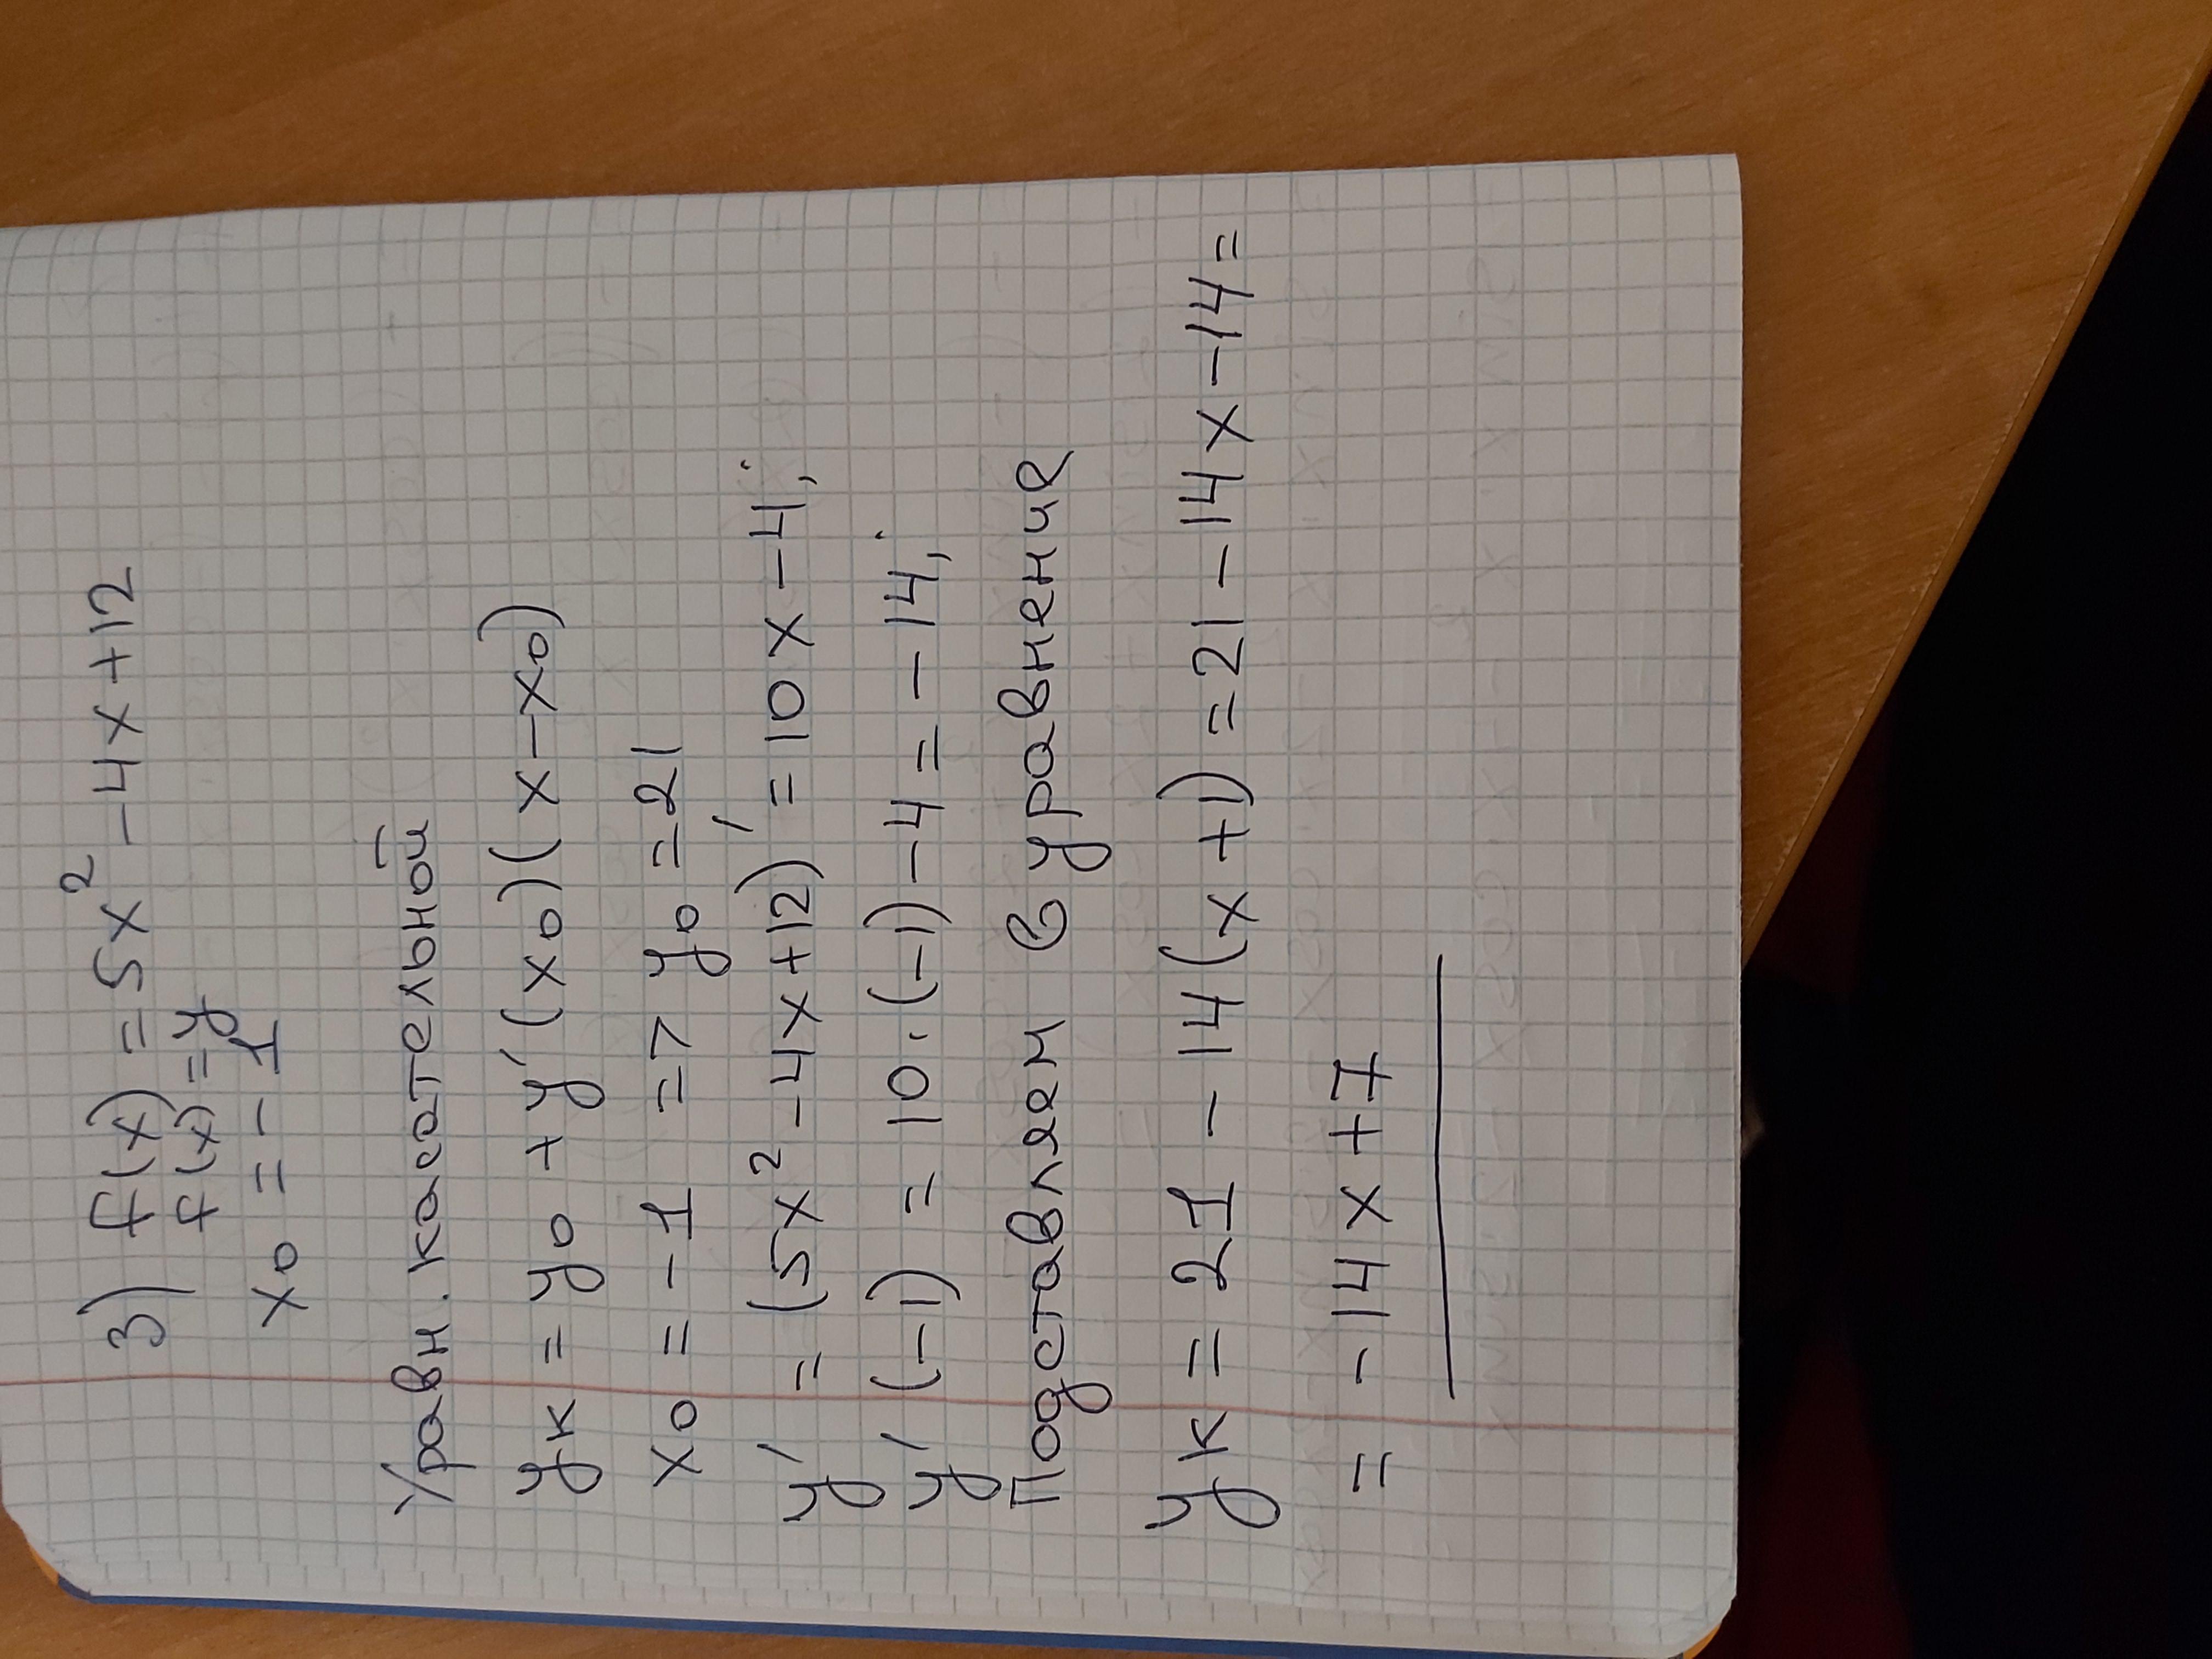 3) f(x) = 5x² - 4x + 12
f(x) = y
x₀ = - 1
Уравн. касательной
yк = y₀ + y'(x₀)(x - x₀)
x₀ = - 1 => y₀ = 21
y' = (5x² - 4x + 12)' = 10x - 4;
y'(-1) = 10·(-1) - 4 = - 14;
Подставляем в уравнение
yк = 21 - 14(x + 1) = 21 - 14x - 14 =
= - 14x + 7